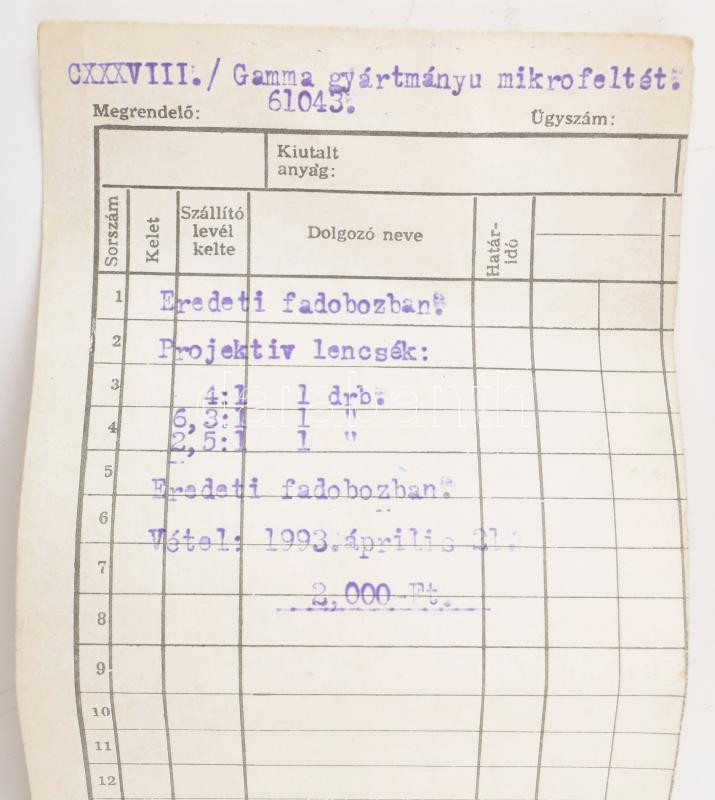 CXXXVIII./ Gamma gyártmányu mikrofeltét.
61043.
Megrendelő:
Ügyszám:
Kiutalt
anyag:
Sorszám
Kelet
Szállító
levél
kelte
Dolgozó neve
Határ-
idő
1 Eredeti fadobozban.
2 Projektiv lencsék:
3 4:1 1 drb.
6,3:1 1 "
4 2,5:1 1 "
5
Eredeti fadobozban.
6
Vétel: 1993.április 21.
7
2,000 Ft.
8
9
10
11
12
darabanth